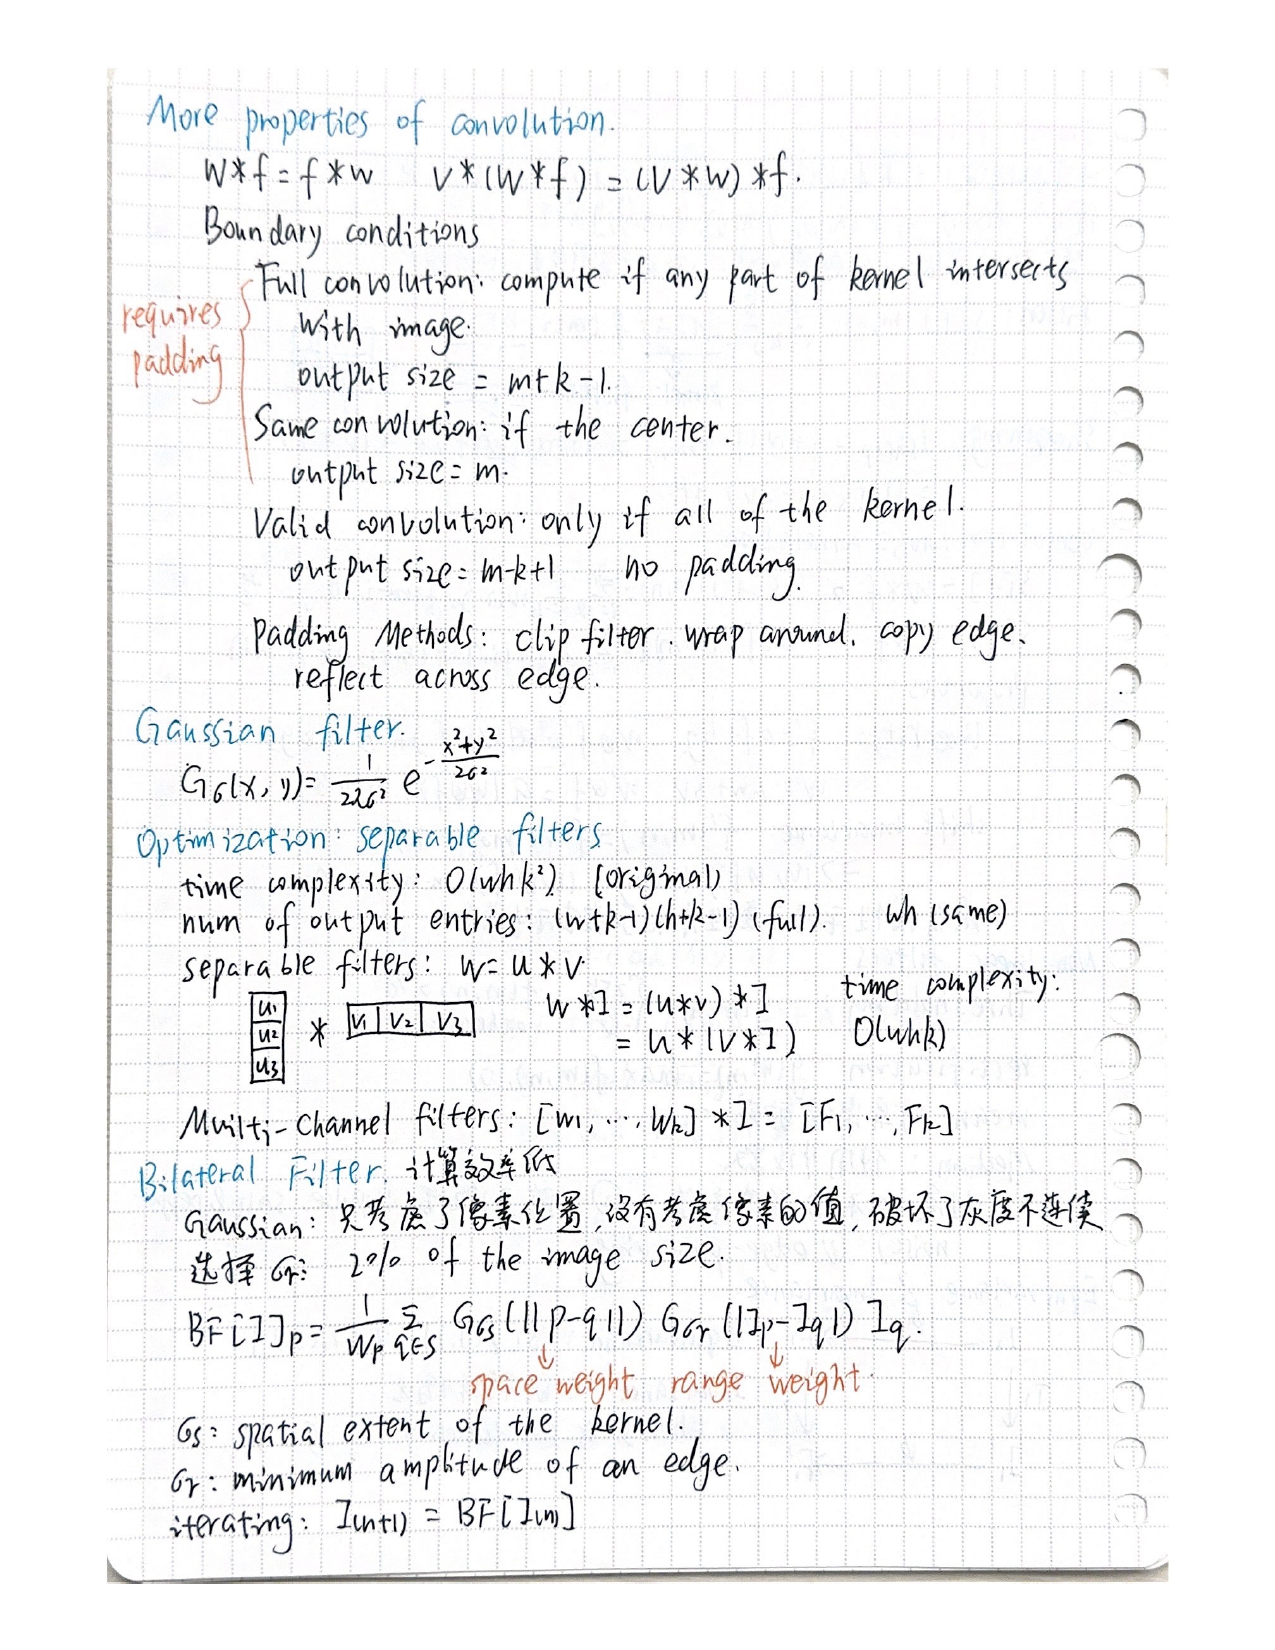 More properties of convolution.
W*f = f*w   V*(W*f) = (V*W)*f.
Boundary conditions
requires padding
Full convolution: compute if any part of kernel intersects
with image.
output size = m+k-1.
Same convolution: if the center.
output size = m.
Valid convolution: only if all of the kernel.
output size = m-k+1   no padding.
Padding Methods: clip filter. wrap around. copy edge.
reflect across edge.
Gaussian filter.
Gσ(x, y) = 1/2πσ² e^-(x²+y²)/2σ²
Optimization: separable filters
time complexity: O(whk²) (original)
num of output entries: (w+k-1)(h+k-1) (full).   wh (same)
separable filters: W = u*v
u1 u2 u3 * v1 v2 v3   W*I = (u*v)*I   time complexity:
= u*(v*I)   O(whk)
Muilti-Channel filters: [W1, ..., Wk]*I = [F1, ..., Fk]
Bilateral Filter. 计算效率低
Gaussian: 只考虑了像素位置,没有考虑像素的值,破坏了灰度不连续
选择 σr: 2% of the image size.
BF[I]p = 1/Wp Σq∈S Gσs(||p-q||) Gσr(|Ip-Iq|) Iq.
↓ ↓
space weight range weight.
σs: spatial extent of the kernel.
σr: minimum amplitude of an edge.
iterating: I(n+1) = BF[I(n)]